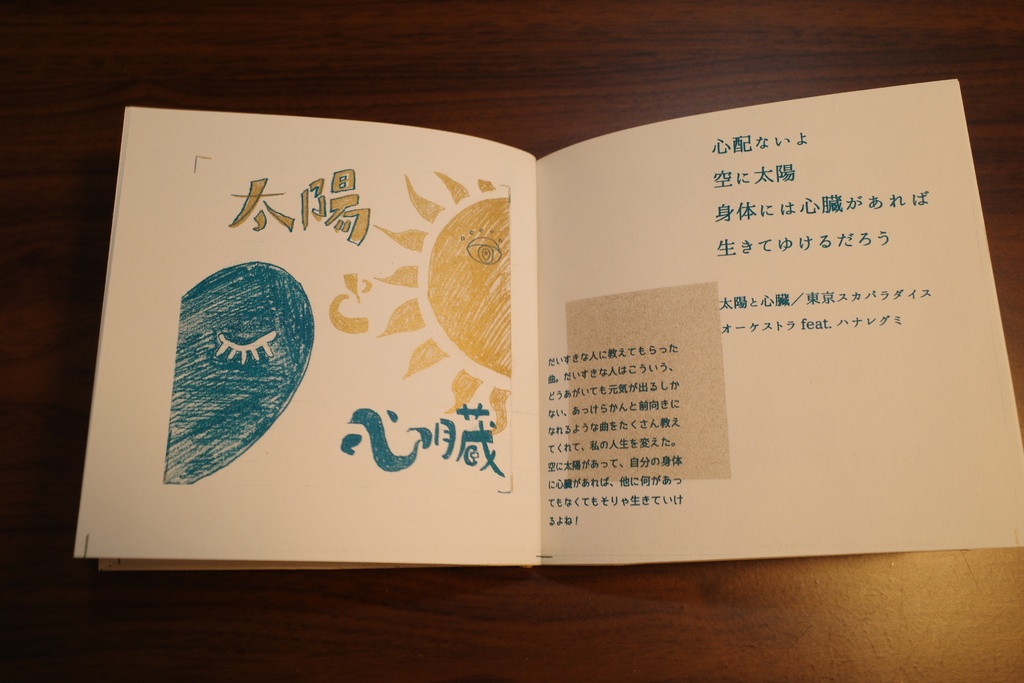 太陽
と
心臓
心配ないよ
空に太陽
身体には心臓があれば
生きてゆけるだろう
太陽と心臓／東京スカパラダイス
オーケストラ feat. ハナレグミ
だいすきな人に教えてもらった
曲。だいすきな人はこういう、
どうあがいても元気が出るしか
ない、あっけらかんと前向きに
なれるような曲をたくさん教え
てくれて、私の人生を変えた。
空に太陽があって、自分の身体
に心臓があれば、他に何があっ
てもなくてもそりゃ生きていけ
るよね！